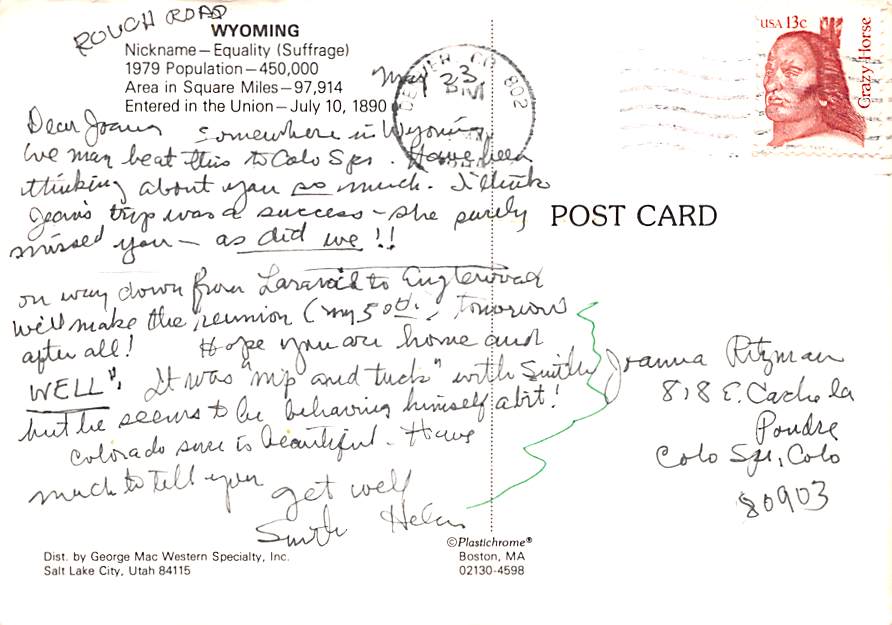 ROUGH ROAD
WYOMING
Nickname—Equality (Suffrage)
1979 Population—450,000
Area in Square Miles—97,914
Entered in the Union—July 10, 1890
May
DENVER CO 802
23
PM
USA 13c
Crazy Horse
Dear Joanna somewhere in Wyoming,
we may beat this to Colo Spgs. Have been
thinking about you so much. I think
Jean's trip was a success - she surely
missed you - as did we!!
on way down from to Englewood
We'll make the reunion (my 50th, tomorrow
after all! Hope you are home and
WELL". It was "nip and tuck" with Smith
but he seems to be behaving himself a bit!
Colorado sure is beautiful. Have
much to tell you
get well
Smith Helen
POST CARD
Joanna Ritzman
818 E. Cache la
Poudre
Colo Spr, Colo
80903
Dist. by George Mac Western Specialty, Inc.
Salt Lake City, Utah 84115
©Plastichrome®
Boston, MA
02130-4598